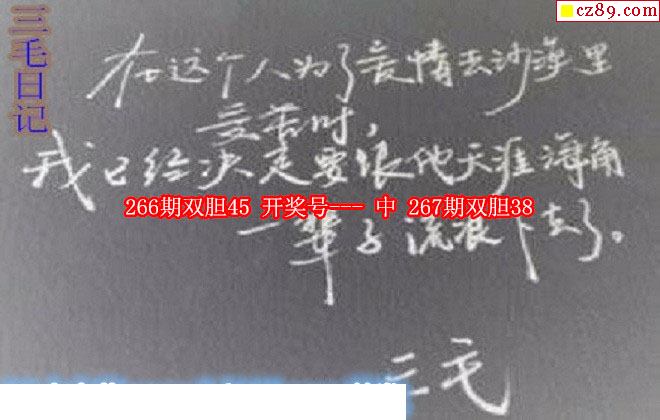 cz89.com
三毛日记
在这个人为了爱情去沙漠里
受苦时,
我已经决定要跟他天涯海角
266期双胆45 开奖号--- 中 267期双胆38
一辈子流浪下去了。
三毛